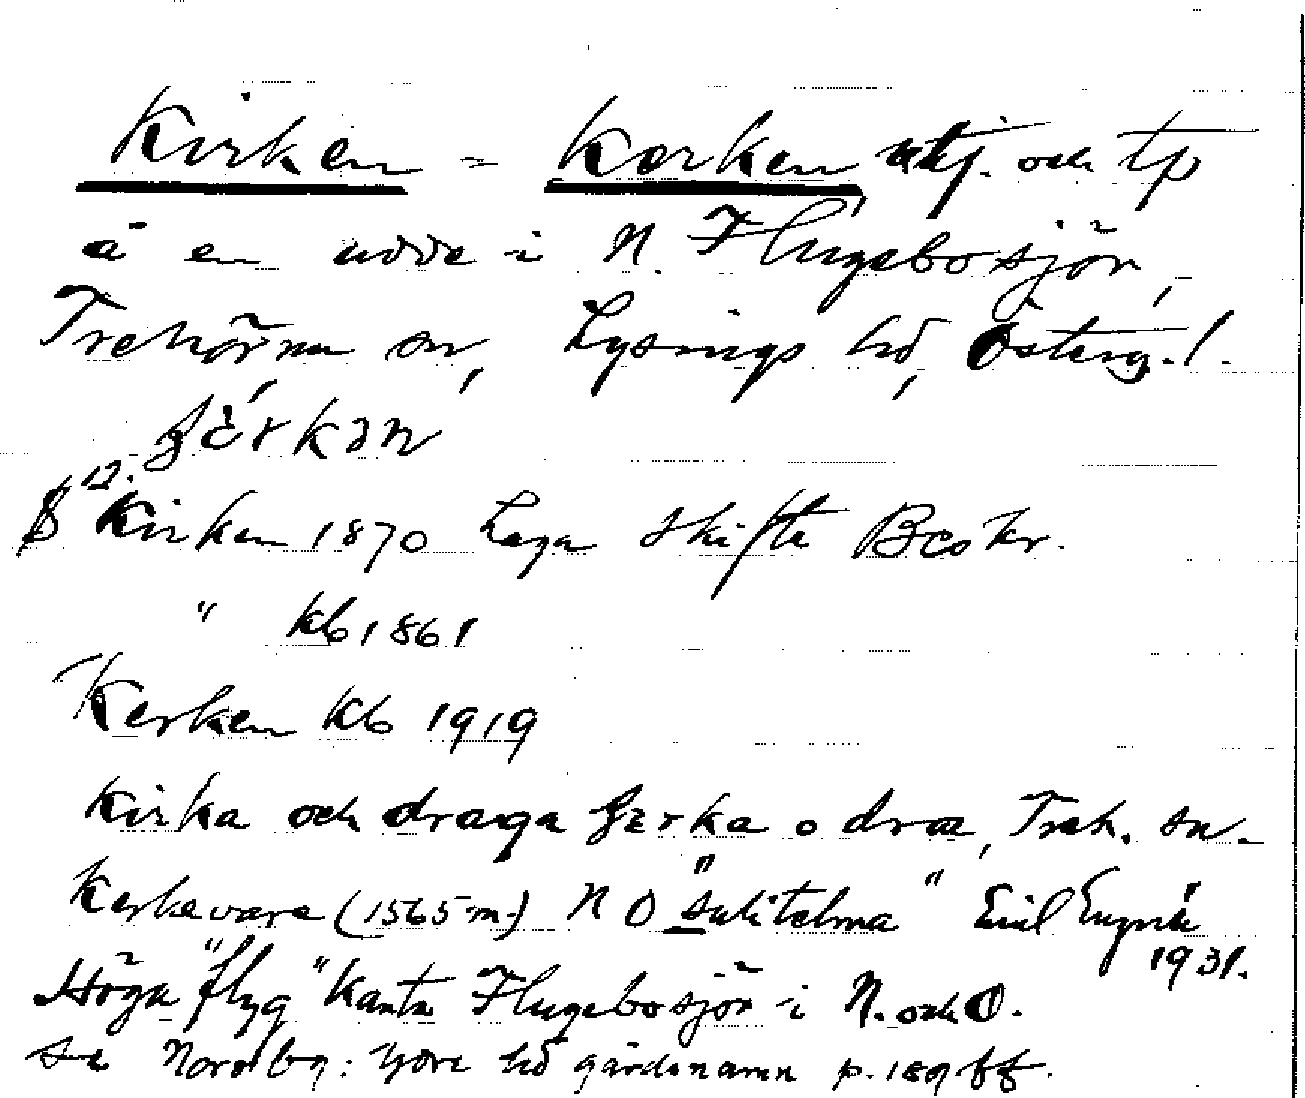 Kirken - Kerken utj. och tp
å en udde i N. Flugebosjön,
Trehörna sn, Lysings hd, Österg.l.
Kirken 1870 Laga skifte Beskr.
" Kb 1861
Kerken Kb 1919
Kirka och draga o dra, Treh. sn.
Kerkevare (1565 m.) N O "Sulitelma" Emil
1931.
Höga "flyg" kanta Flugebosjön i N. och O.
Se Nordbg: Ydre hd gårdsnamn p. 189 ff.